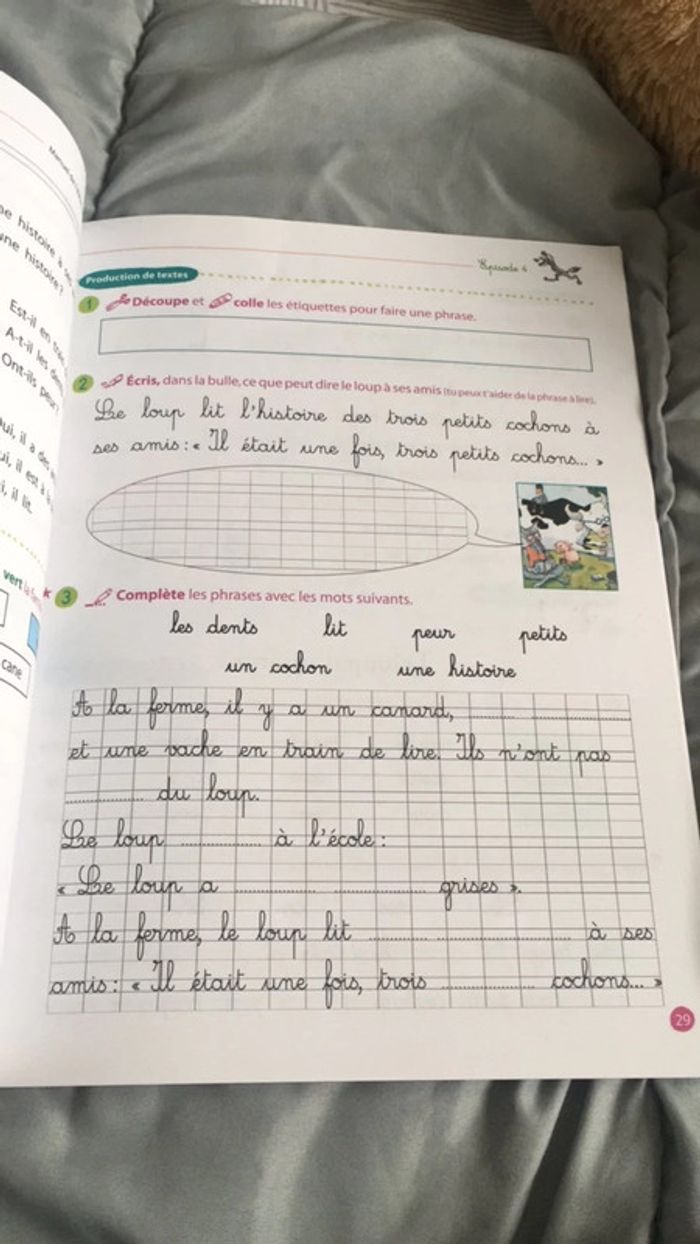 ne histoire à
une histoire ?
Est-il en train
A-t-il les dents
Ont-ils peur ?
oui, il a des
ui, il est à
i, il lit.
vert la
cane
Episode 4
Production de textes
1 Découpe et colle les étiquettes pour faire une phrase.
2 Écris, dans la bulle, ce que peut dire le loup à ses amis (tu peux t'aider de la phrase à lire).
Le loup lit l'histoire des trois petits cochons à
ses amis : « Il était une fois, trois petits cochons... »
3 Complète les phrases avec les mots suivants.
les dents lit peur petits
un cochon une histoire
A la ferme, il y a un canard, .......... ..........
et une vache en train de lire. Ils n'ont pas
.......... du loup.
Le loup .......... à l'école :
« Le loup a .......... .......... grises ».
A la ferme, le loup lit .......... .......... à ses
amis : « Il était une fois, trois .......... cochons... »
29